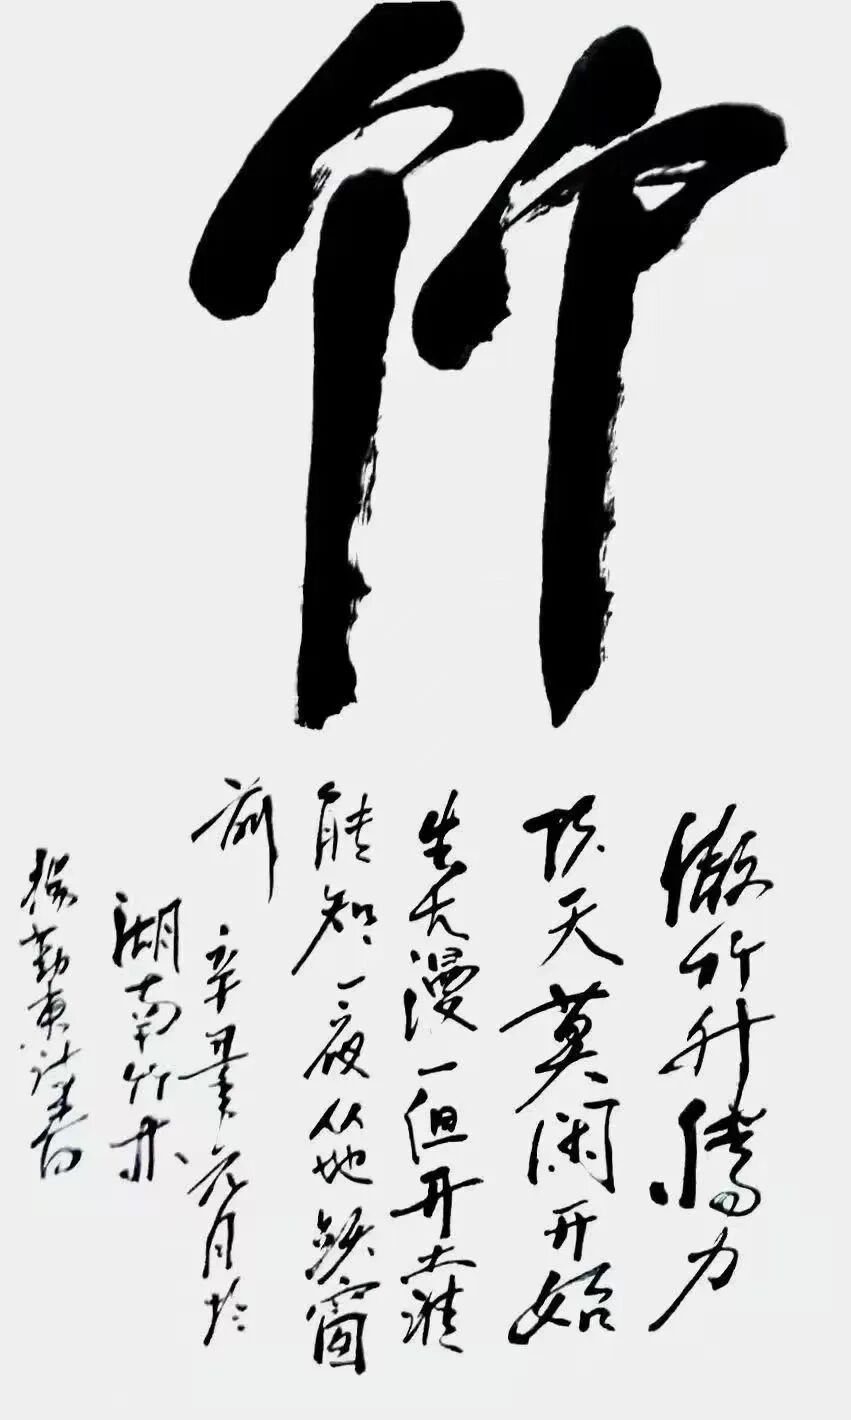 竹
傲竹升腾力
顶天莫闲开始
生大漫一但开土谁
能知一夜从地跃窗
前
辛丑年元月於
湖南竹
杨勤东诗书